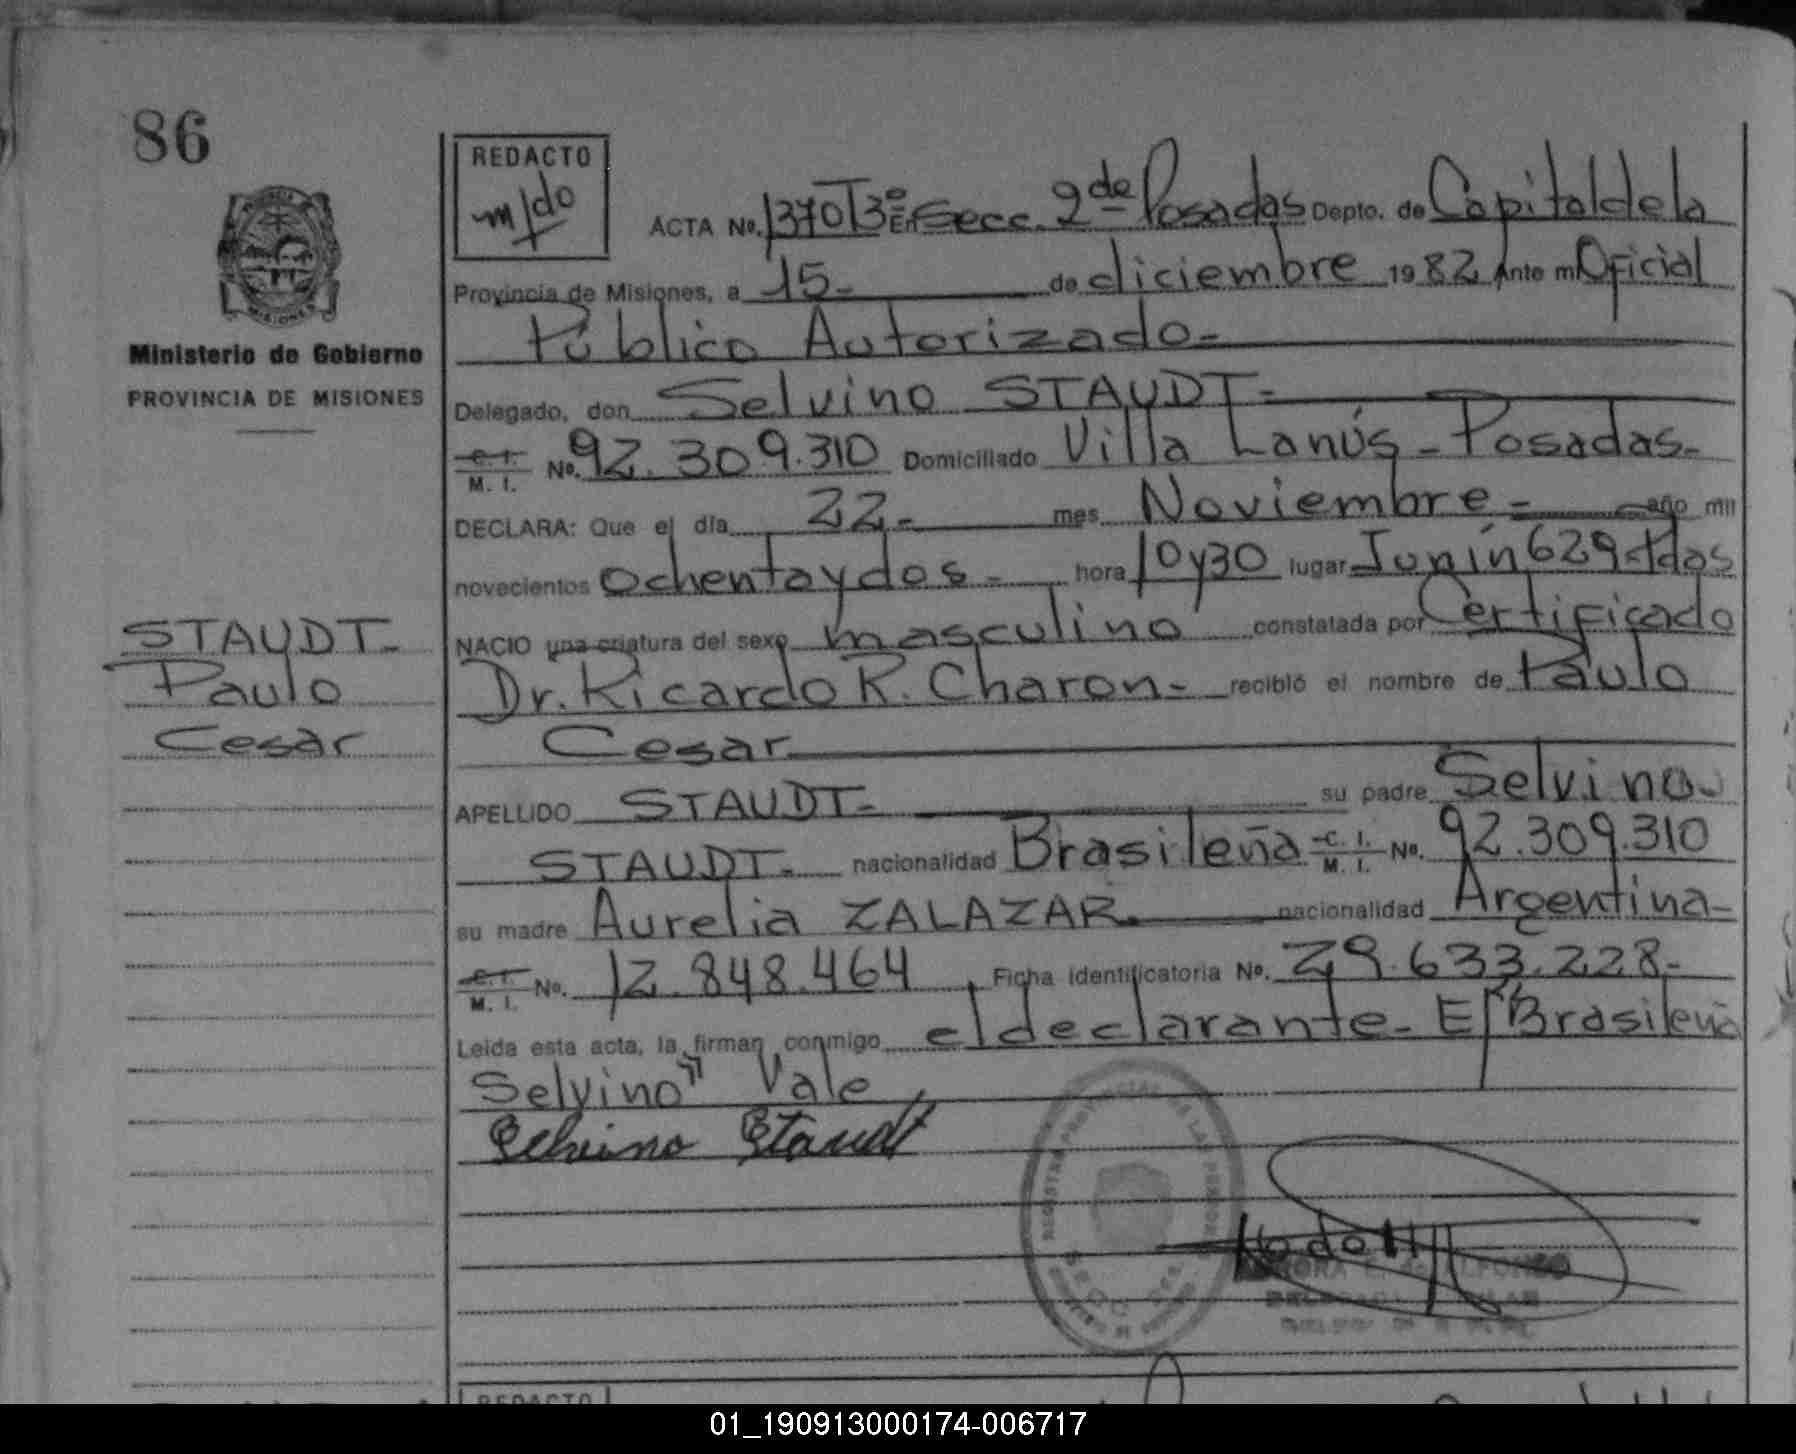 86
REDACTO
m/do
ACTA No. 1370 T3º En Secc. 2da de Posadas Depto. de Capital de la
Provincia de Misiones, a 15- de diciembre 1982 Ante mi Oficial
Público Autorizado-
Ministerio de Gobierno
PROVINCIA DE MISIONES
Delegado, don Selvino STAUDT-
C. I. M. I. No. 92.309.310 Domiciliado Villa Lanús - Posadas-
DECLARA: Que el día 22- mes Noviembre- año mil
novecientos ochenta y dos- hora 10 y 30 lugar Junín 629-Pdas
NACIO una criatura del sexo masculino constatada por Certificado
Dr. Ricardo R. Charon- recibló el nombre de Paulo
Cesar
STAUDT-
Paulo
Cesar
APELLIDO STAUDT- su padre Selvino-
STAUDT- nacionalidad Brasileña C. I. M. I. No. 92.309.310
su madre Aurelia ZALAZAR- nacionalidad Argentina-
C. I. M. I. No. 12.848.464 Ficha identificatoria No. 29.633.228-
Leida esta acta, la firman conmigo el declarante- E/ "Brasileña
Selvino" Vale
Selvino Staudt
REDACTO
01_190913000174-006717